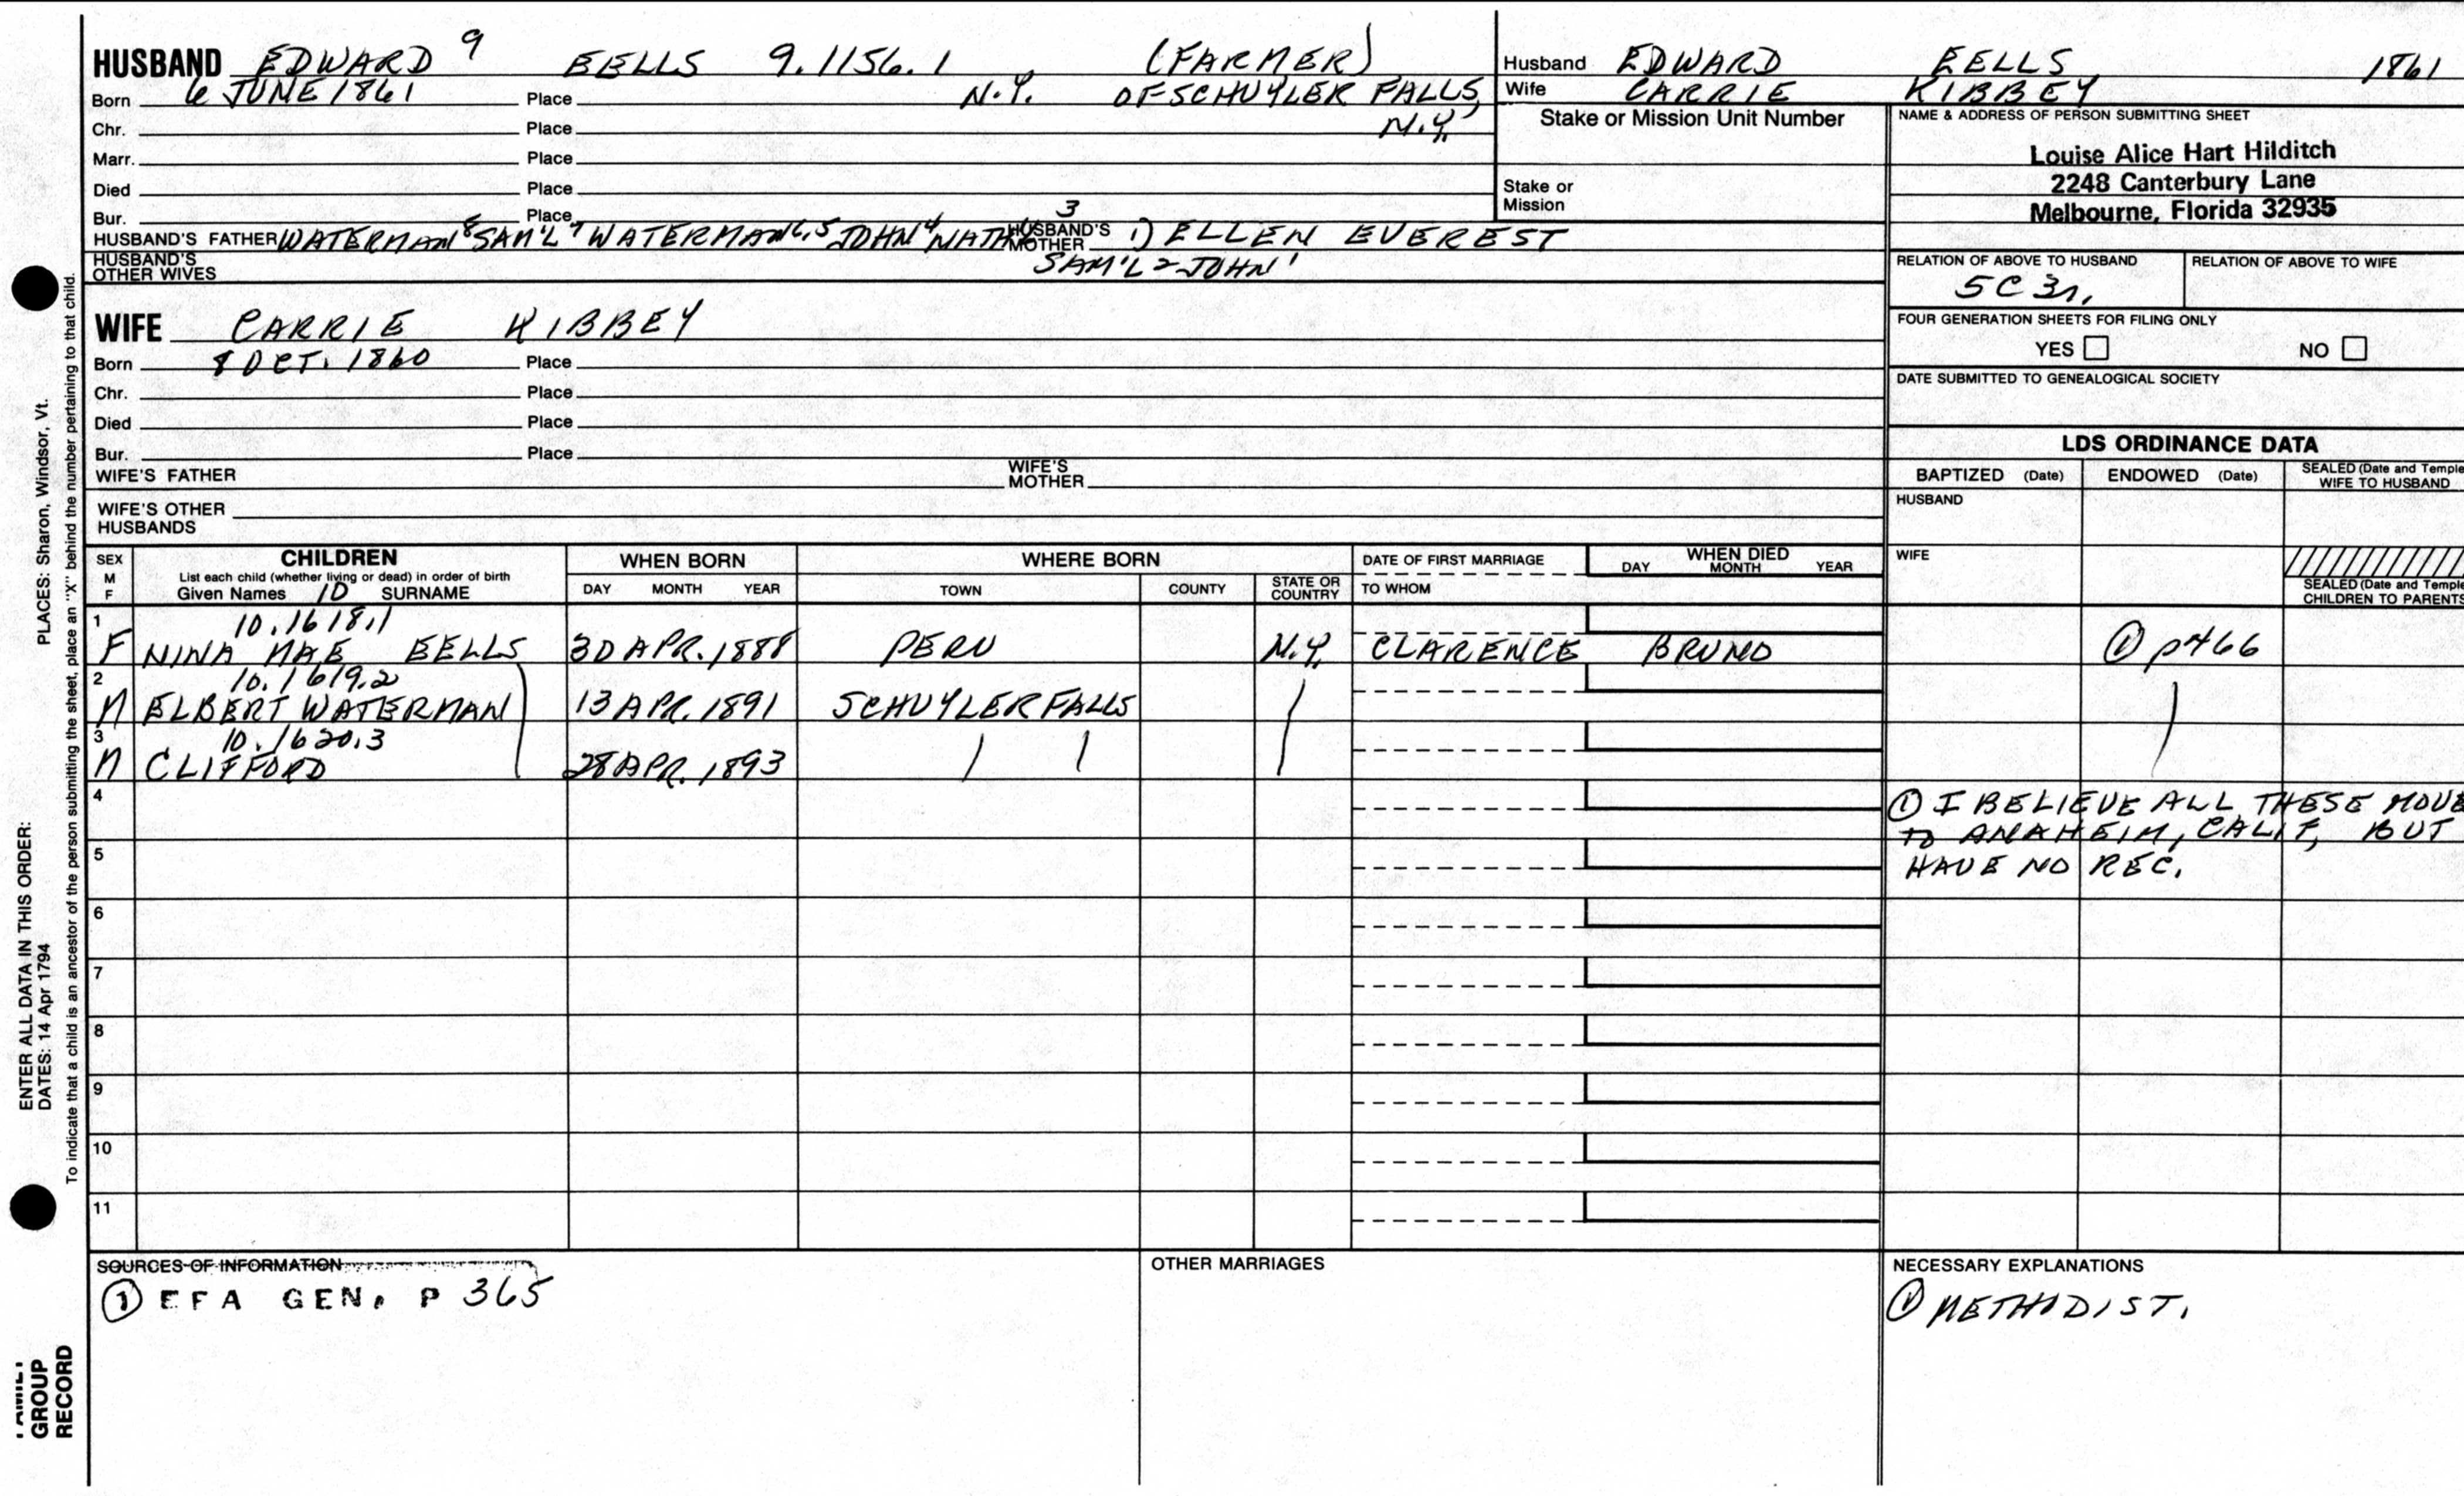 HUSBAND EDWARD 9 EELLS 9.1156.1 (FARMER)
Born 6 JUNE 1861 Place N.Y. OF SCHUYLER FALLS,
Chr. Place N.Y.
Marr. Place
Died Place
Bur. Place
HUSBAND'S FATHER WATERMAN 8 SAM'L 7 WATERMAN 6,5 JOHN 4 NATH 3 HUSBAND'S MOTHER 1) ELLEN EVEREST
HUSBAND'S OTHER WIVES SAM'L 2 JOHN 1
Husband EDWARD EELLS 1861
Wife CARRIE KIBBEY
Stake or Mission Unit Number
Stake or
Mission
NAME & ADDRESS OF PERSON SUBMITTING SHEET
Louise Alice Hart Hilditch
2248 Canterbury Lane
Melbourne, Florida 32935
RELATION OF ABOVE TO HUSBAND RELATION OF ABOVE TO WIFE
5C 3r,
FOUR GENERATION SHEETS FOR FILING ONLY
YES NO
DATE SUBMITTED TO GENEALOGICAL SOCIETY
WIFE CARRIE KIBBEY
Born 8 OCT. 1860 Place
Chr. Place
Died Place
Bur. Place
WIFE'S FATHER WIFE'S MOTHER
WIFE'S OTHER
HUSBANDS
LDS ORDINANCE DATA
BAPTIZED (Date) ENDOWED (Date) SEALED (Date and Temple
WIFE TO HUSBAND
HUSBAND
WIFE
SEALED (Date and Temple
CHILDREN TO PARENTS
SEX
M
F
CHILDREN
List each child (whether living or dead) in order of birth
Given Names 10 SURNAME
WHEN BORN
DAY MONTH YEAR
WHERE BORN
TOWN COUNTY STATE OR COUNTRY
DATE OF FIRST MARRIAGE
TO WHOM
WHEN DIED
DAY MONTH YEAR
1 10.1618.1
F NINA MAE EELLS 30 APR. 1888 PERU N.Y. CLARENCE BRUNO ① p466
2 10.1619.2
M ELBERT WATERMAN 13 APR. 1891 SCHUYLER FALLS
3 10.1620.3
M CLIFFORD 28 APR. 1893
4
① I BELIEVE ALL THESE MOVE
TO ANAHEIM, CALIF, BUT
HAVE NO REC.
5
6
7
8
9
10
11
SOURCES OF INFORMATION
① EFA GEN. P 365
OTHER MARRIAGES
NECESSARY EXPLANATIONS
① METHODIST.
ENTER ALL DATA IN THIS ORDER:
DATES: 14 Apr 1794
PLACES: Sharon, Windsor, Vt.
To indicate that a child is an ancestor of the person submitting the sheet, place an "X" behind the number pertaining to that child.
GROUP
RECORD